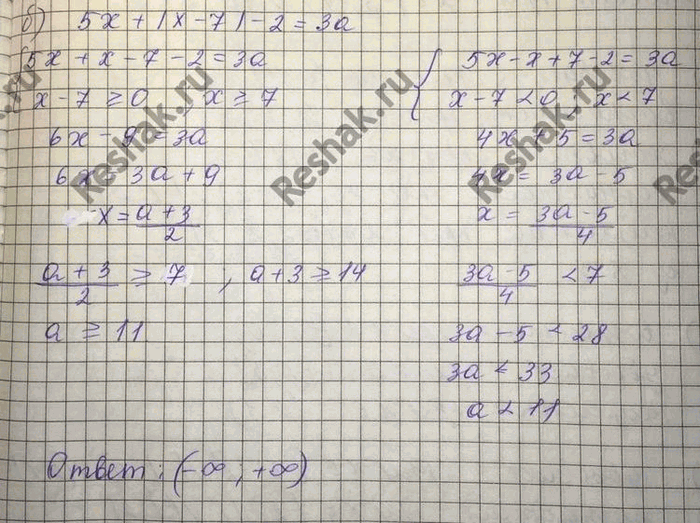 б) 5x + |x - 7| - 2 = 3a
5x + x - 7 - 2 = 3a
x - 7 ≥ 0, x ≥ 7
6x - 9 = 3a
6x = 3a + 9
x = (a + 3)/2
(a + 3)/2 ≥ 7 ; a + 3 ≥ 14
a ≥ 11
5x - x + 7 - 2 = 3a
x - 7 < 0, x < 7
4x + 5 = 3a
4x = 3a - 5
x = (3a - 5)/4
(3a - 5)/4 < 7
3a - 5 < 28
3a < 33
a < 11
Ответ: (-∞; +∞)
Reshak.ru
Reshak.ru
Reshak.ru